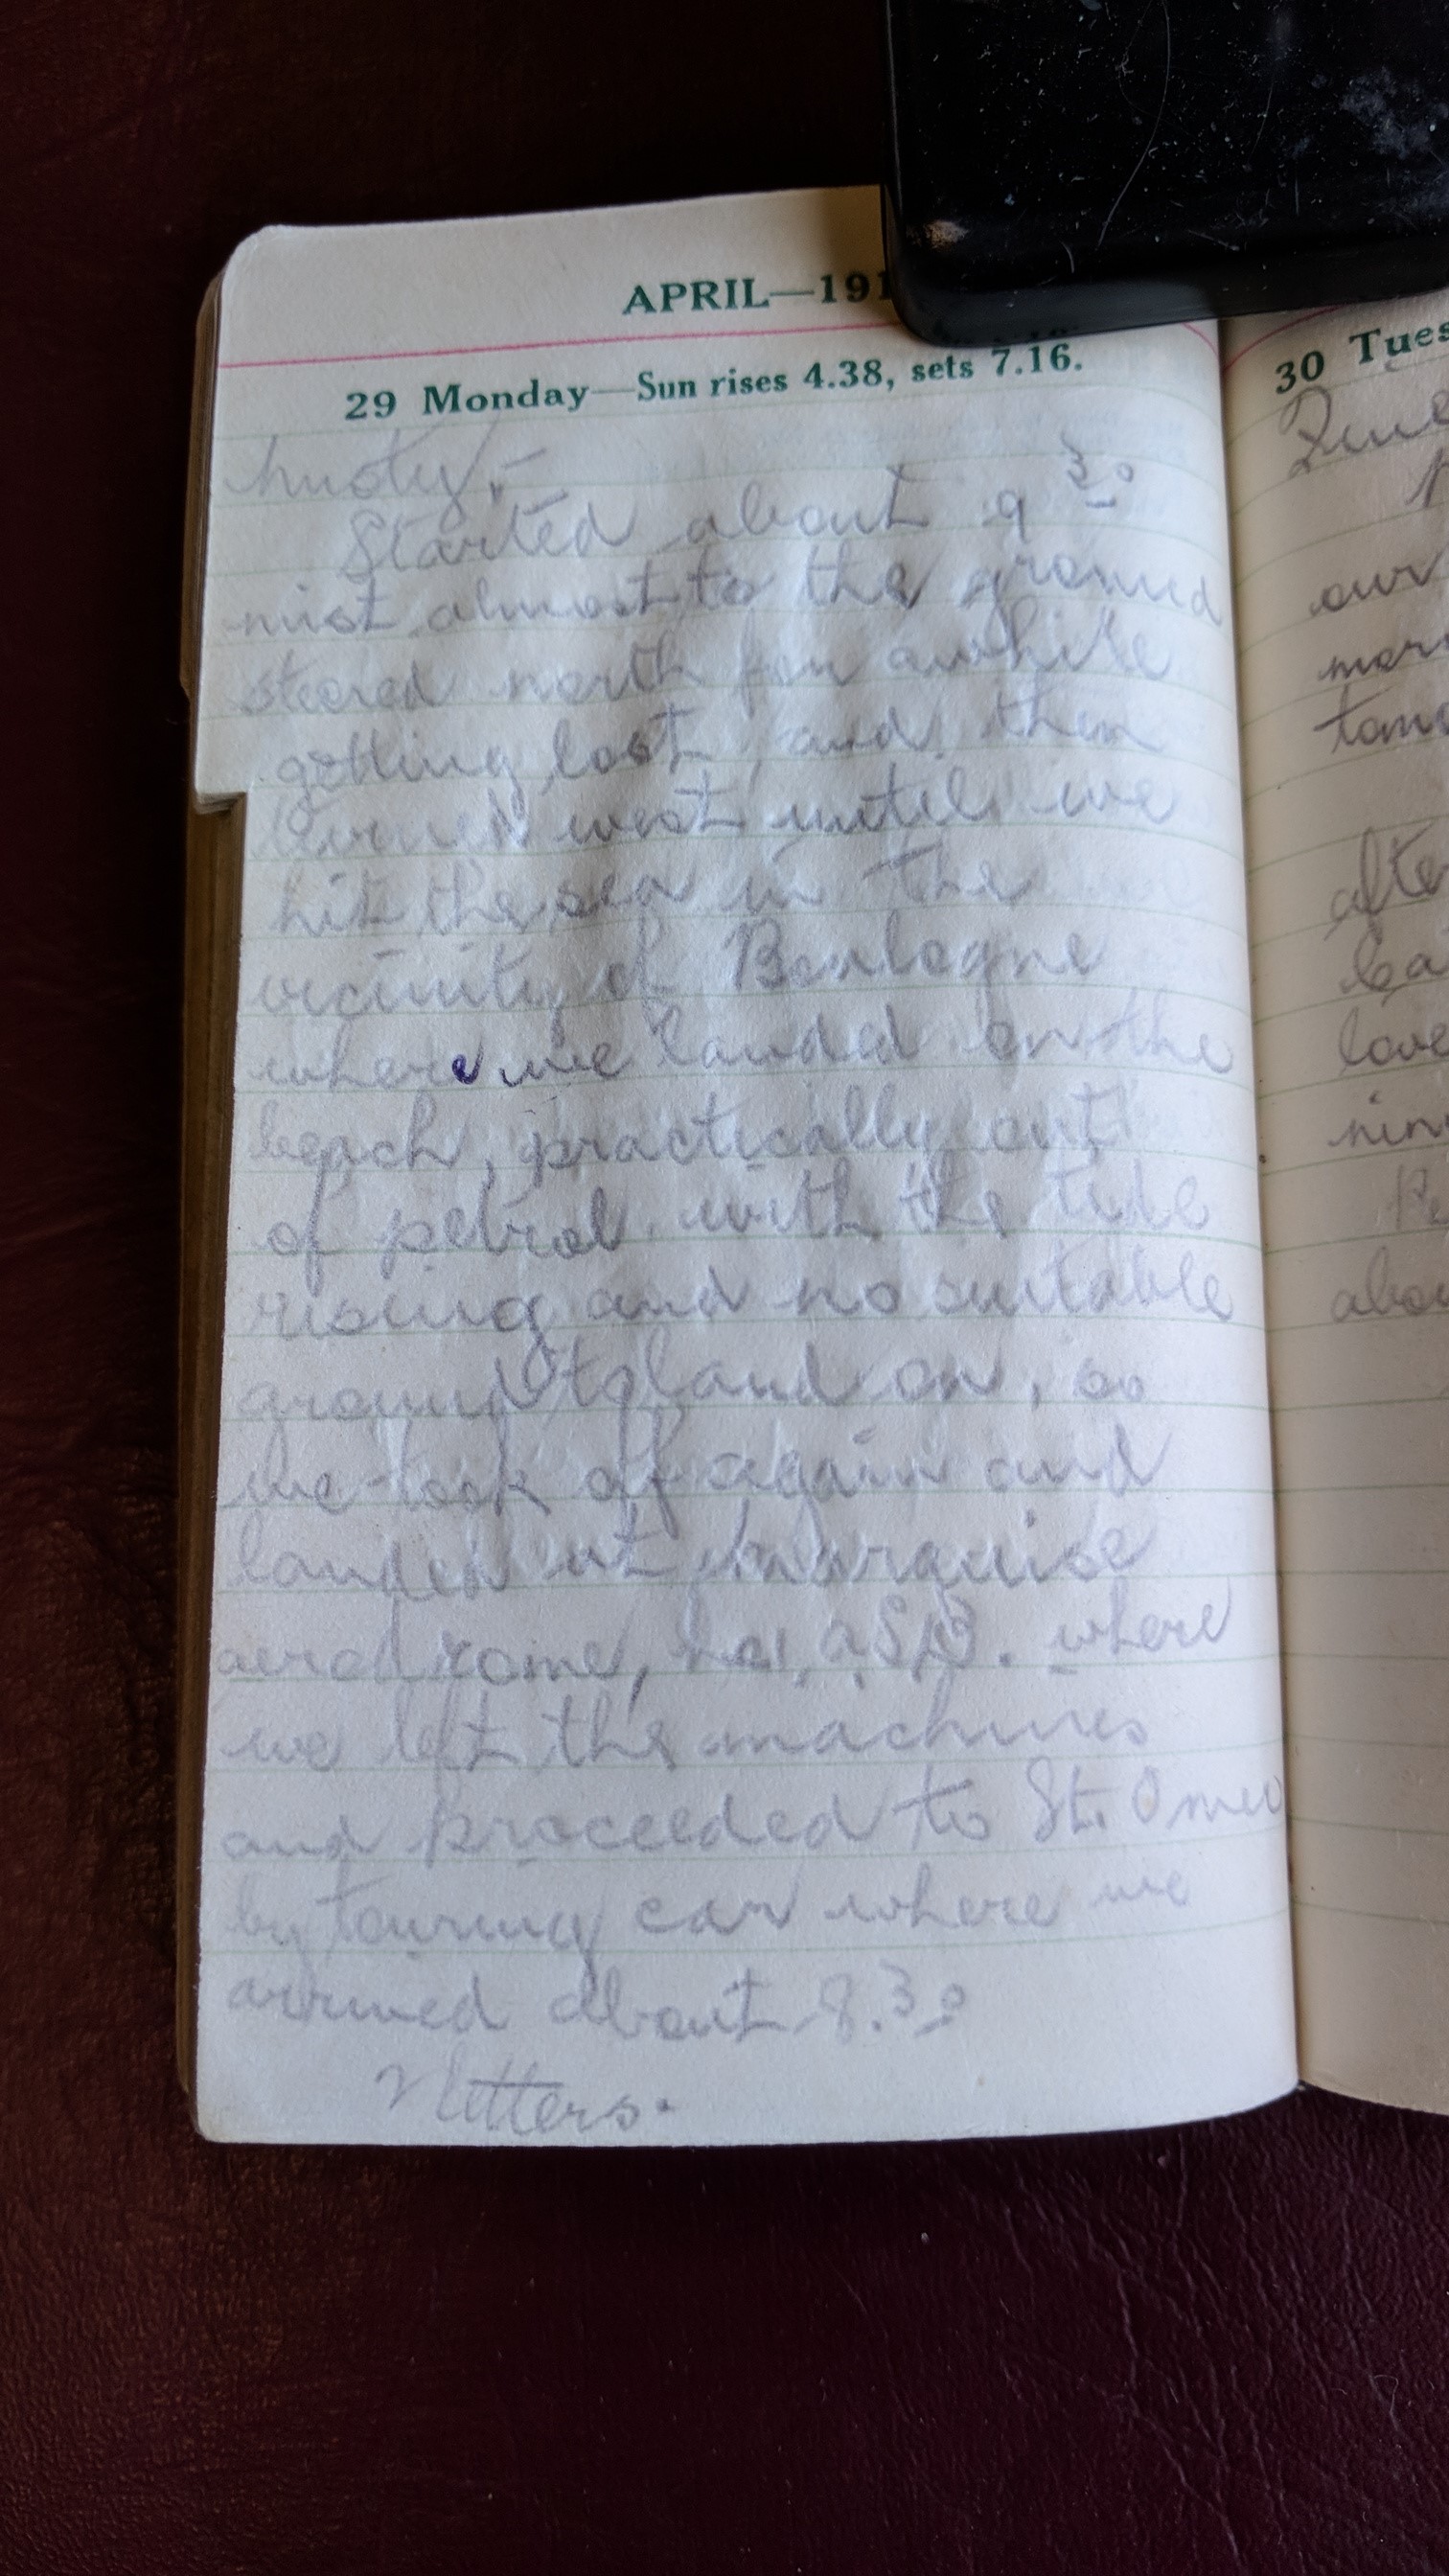 APRIL—191
29 Monday—Sun rises 4.38, sets 7.16.
Misty.
Started about 9 30
mist almost to the ground
steered north for awhile
getting lost, and then
turned west until we
hit the sea in the
vicinity of Boulogne
where we landed on the
beach, practically out
of petrol. with the tide
rising and no suitable
ground to land on, so
we took off again and
landed at Marquise
aerodrome, No 1, ASD. where
we left the machines
and proceeded to St. Omer
by touring car where we
arrived about 8.30
2 letters.
30 Tues
our
afte
love